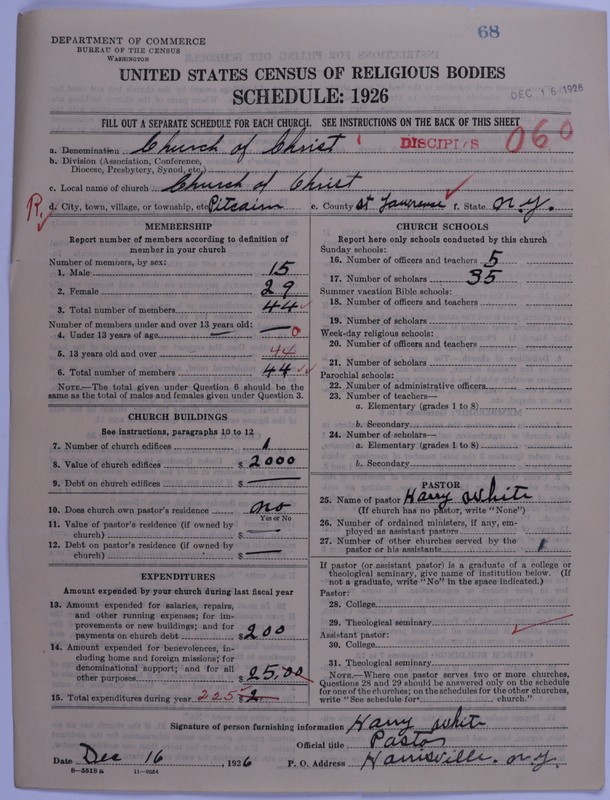 68
DEPARTMENT OF COMMERCE
BUREAU OF THE CENSUS
WASHINGTON
UNITED STATES CENSUS OF RELIGIOUS BODIES
SCHEDULE: 1926
DEC 16 1926
FILL OUT A SEPARATE SCHEDULE FOR EACH CHURCH. SEE INSTRUCTIONS ON THE BACK OF THIS SHEET
a. Denomination Church of Christ DISCIPLES 060
b. Division (Association, Conference, Diocese, Presbytery, Synod, etc.)
c. Local name of church Church of Christ
R. d. City, town, village, or township, etc. Pitcairn e. County St Lawrence f. State N.Y.
MEMBERSHIP
Report number of members according to definition of member in your church
Number of members, by sex:
1. Male 15
2. Female 29
3. Total number of members 44
Number of members under and over 13 years old:
4. Under 13 years of age — 0
5. 13 years old and over 44
6. Total number of members 44
NOTE.—The total given under Question 6 should be the same as the total of males and females given under Question 3.
CHURCH BUILDINGS
See instructions, paragraphs 10 to 12
7. Number of church edifices 1
8. Value of church edifices $2000
9. Debt on church edifices $—
10. Does church own pastor's residence no
Yes or No
11. Value of pastor's residence (if owned by church) $—
12. Debt on pastor's residence (if owned by church) $—
EXPENDITURES
Amount expended by your church during last fiscal year
13. Amount expended for salaries, repairs, and other running expenses; for improvements or new buildings; and for payments on church debt $200
14. Amount expended for benevolences, including home and foreign missions; for denominational support; and for all other purposes $25.00
15. Total expenditures during year 225
CHURCH SCHOOLS
Report here only schools conducted by this church
Sunday schools:
16. Number of officers and teachers 5
17. Number of scholars 35
Summer vacation Bible schools:
18. Number of officers and teachers
19. Number of scholars
Week-day religious schools:
20. Number of officers and teachers
21. Number of scholars
Parochial schools:
22. Number of administrative officers
23. Number of teachers—
a. Elementary (grades 1 to 8)
b. Secondary
24. Number of scholars—
a. Elementary (grades 1 to 8)
b. Secondary
PASTOR
25. Name of pastor Harry White
(If church has no pastor, write "None")
26. Number of ordained ministers, if any, employed as assistant pastors
27. Number of other churches served by the pastor or his assistants 1
If pastor (or assistant pastor) is a graduate of a college or theological seminary, give name of institution below. (If not a graduate, write "No" in the space indicated.)
Pastor:
28. College
29. Theological seminary
Assistant pastor:
30. College
31. Theological seminary
NOTE.—Where one pastor serves two or more churches, Questions 28 and 29 should be answered only on the schedule for one of the churches; on the schedules for the other churches, write "See schedule for church."
Signature of person furnishing information Harry White
Official title Pastor
Date Dec 16, 1926 P. O. Address Harrisville. N.Y.
8—5518 a 11—9554